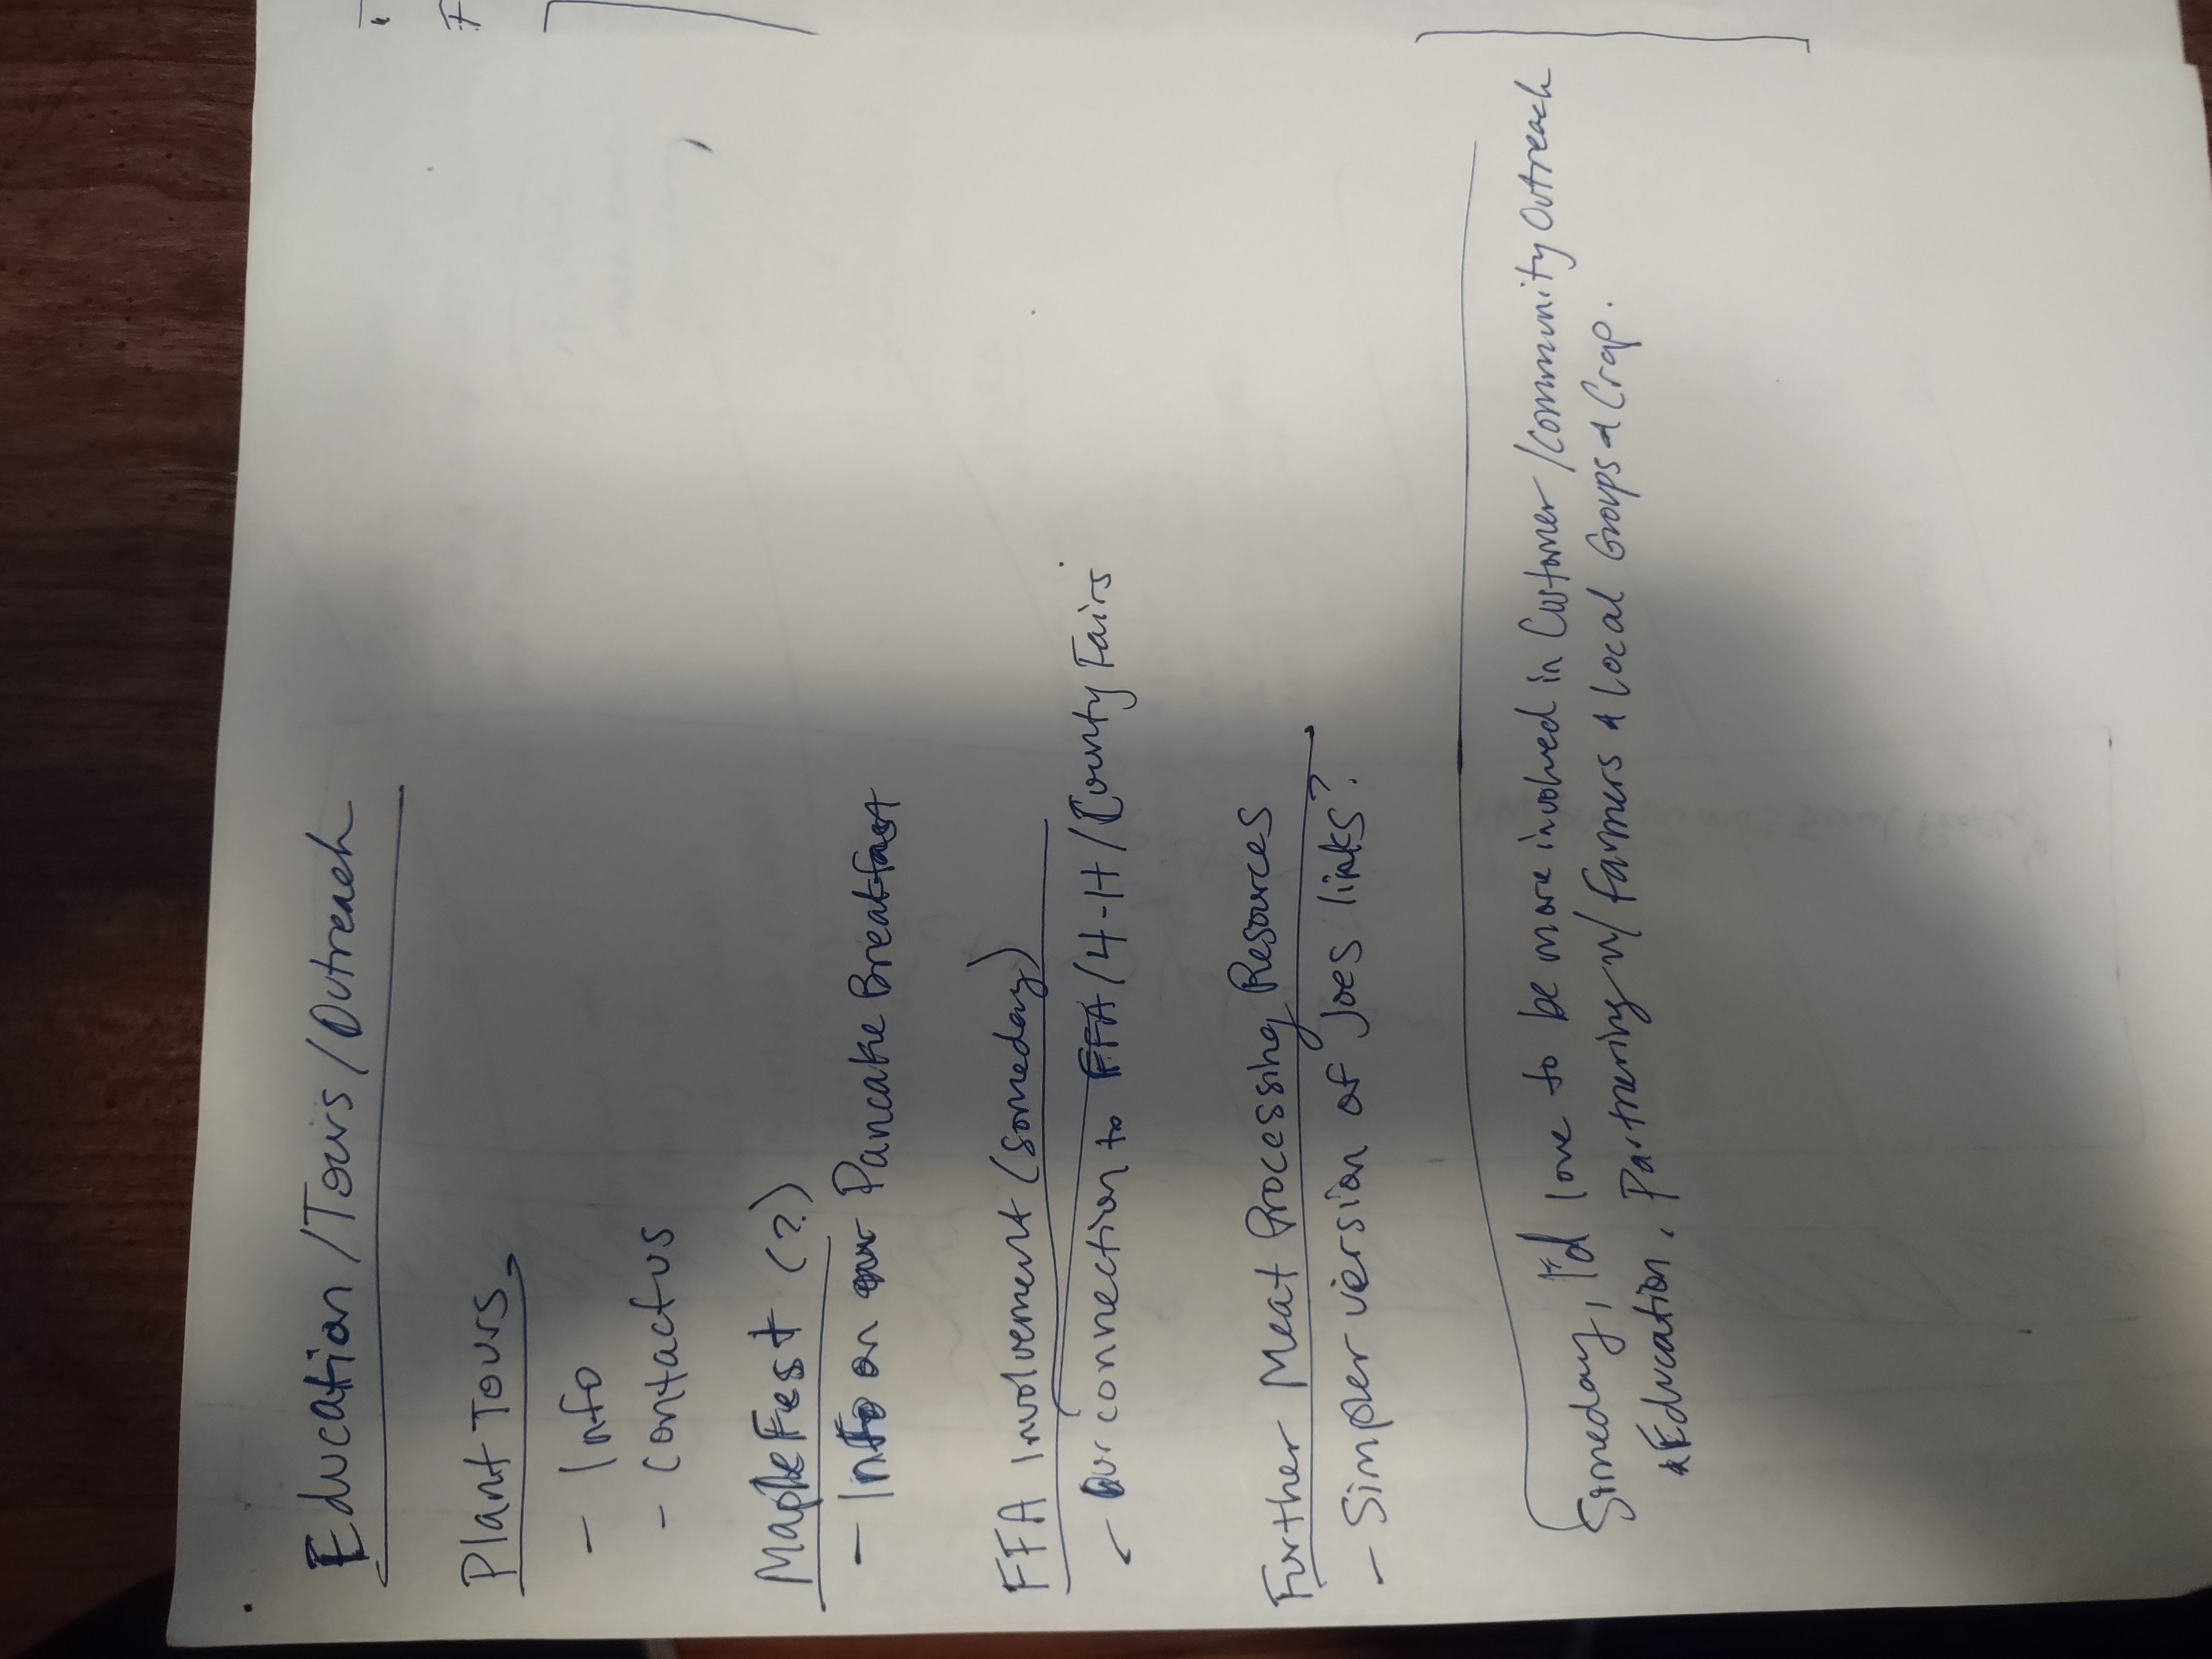 Education / Tours / Outreach
Plant Tours
- Info
- Contact us
MapleFest (?)
- Info on our Pancake Breakfast
FFA Involvement (someday)
- Our connection to FFA / 4-H / County Fairs
Further Meat Processing Resources
- Simpler version of Joes links?
Someday, I'd love to be more involved in Customer / Community Outreach
& Education, Partnering w/ farmers & Local Groups & Crap.